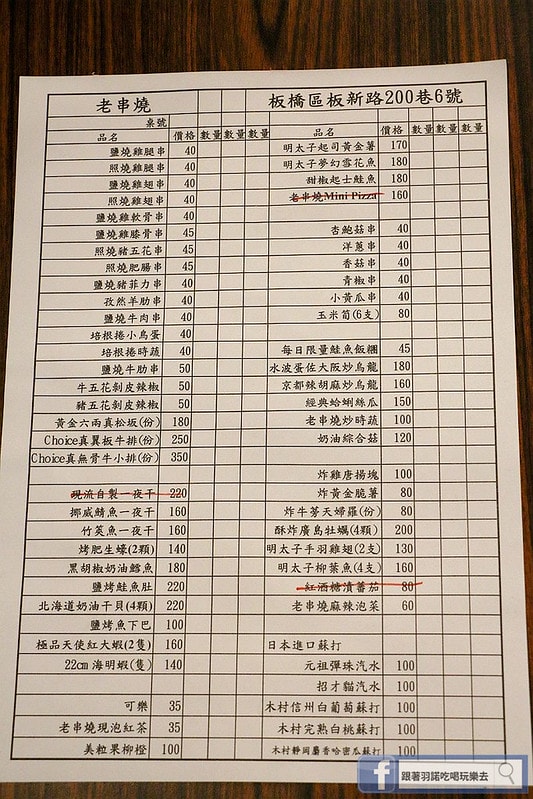 老串燒
板橋區板新路200巷6號
桌號
品名 價格 數量 數量 數量
鹽燒雞腿串 40
照燒雞腿串 40
鹽燒雞翅串 40
照燒雞翅串 40
鹽燒雞軟骨串 40
鹽燒雞膝骨串 45
照燒豬五花串 45
照燒肥腸串 45
鹽燒豬菲力串 40
孜然羊肋串 40
鹽燒牛肉串 40
培根捲小鳥蛋 40
培根捲時蔬 40
鹽燒牛肋串 50
牛五花剝皮辣椒 50
豬五花剝皮辣椒 50
黃金六兩真松坂(份) 180
Choice真翼板牛排(份) 250
Choice真無骨牛小排(份) 350
現流自製一夜干 220
挪威鯖魚一夜干 160
竹筴魚一夜干 160
烤肥生蠔(2顆) 140
黑胡椒奶油鱈魚 180
鹽烤鮭魚肚 220
北海道奶油干貝(4顆) 220
鹽烤魚下巴 100
極品天使紅大蝦(2隻) 160
22cm海明蝦(隻) 140
可樂 35
老串燒現泡紅茶 35
美粒果柳橙 100
品名 價格 數量 數量 數量
明太子起司黃金薯 170
明太子夢幻雪花魚 180
甜椒起士鮭魚 180
老串燒Mini Pizza 160
杏鮑菇串 40
洋蔥串 40
香菇串 40
青椒串 40
小黃瓜串 40
玉米筍(6支) 80
每日限量鮭魚飯糰 45
水波蛋佐大阪炒烏龍 180
京都辣胡麻炒烏龍 160
經典蛤蜊絲瓜 150
老串燒炒時蔬 100
奶油綜合菇 120
炸雞唐揚塊 100
炸黃金脆薯 80
炸牛蒡天婦羅(份) 80
酥炸廣島牡蠣(4顆) 200
明太子手羽雞翅(2支) 130
明太子柳葉魚(4支) 160
紅酒糖漬蕃茄 80
老串燒麻辣泡菜 60
日本進口蘇打
元祖彈珠汽水 100
招才貓汽水 100
木村信州白葡萄蘇打 100
木村完熟白桃蘇打 100
木村靜岡麝香哈密瓜蘇打 100
跟著羽諾吃喝玩樂去